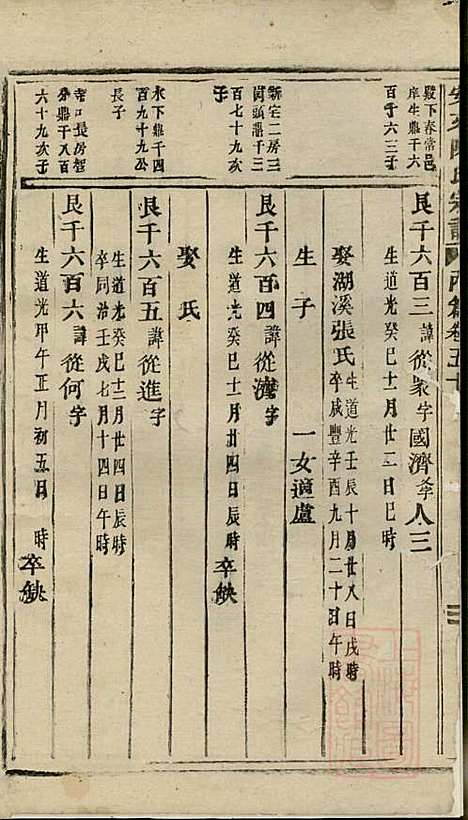 安文陳氏宗譜
殿下春常邑
庠生鼎千六
百千六三子
良千六百三諱從象字國濟
生道光癸巳十二月廿二日巳時
娶湖溪張氏生道光壬辰十月廿八日戌時
卒咸豐辛酉九月二十日午時
生子 一女適盧
新宅二房三
百七十九次
子
良千六百四諱從濟字
生道光癸巳十一月廿四日辰時 卒缺
娶氏
水下鼎千四
百九十九公
長子
良千六百五諱從進字
生道光癸巳十二月廿四日辰時
卒同治壬戌七月十四日午時
寺口長房智
分鼎千八百
六十九次子
良千六百六諱從何字
生道光甲午正月初五日 時 卒缺